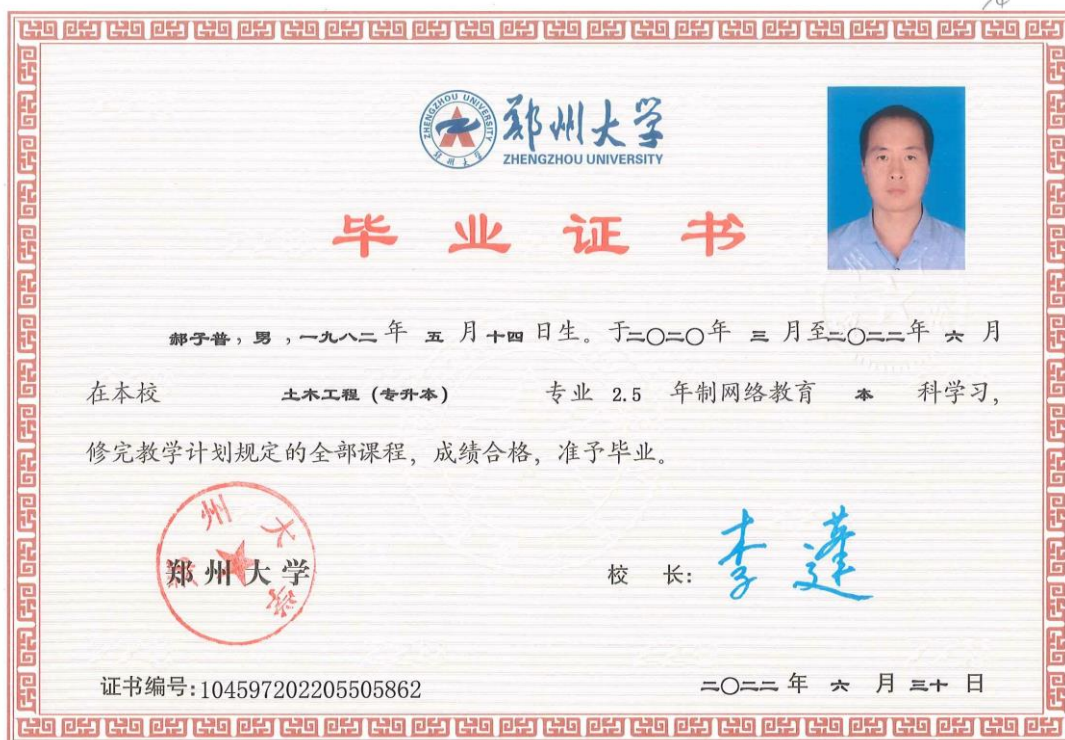 ZHENGZHOU UNIVERSITY
郑州大学
郑州大学
ZHENGZHOU UNIVERSITY
毕业证书
郝子普，男，一九八二年 五 月十四日生。于二〇二〇年 三 月至二〇二二年 六 月
在本校 土木工程（专升本） 专业 2.5 年制网络教育 本 科学习，
修完教学计划规定的全部课程，成绩合格，准予毕业。
郑州大学
郑州大学
校 长：李蓬
证书编号:104597202205505862
二〇二二年 六 月 三十 日